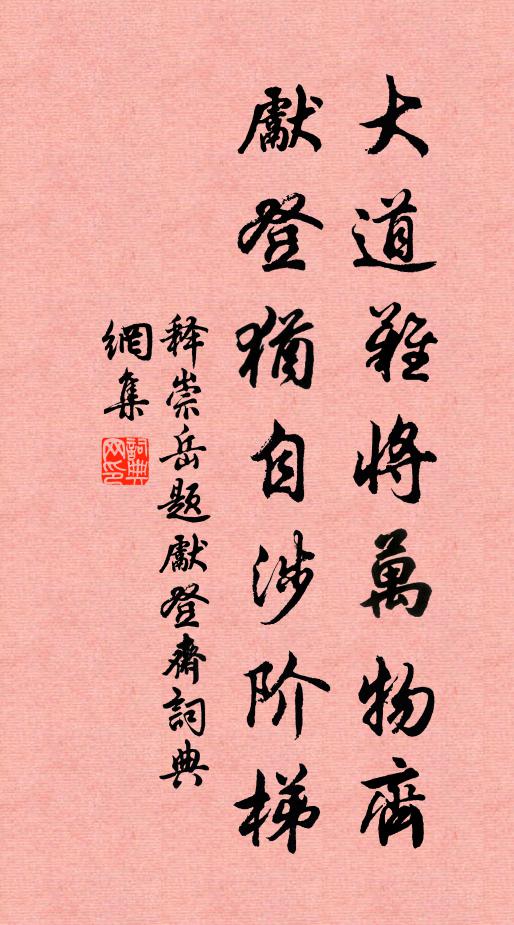 大道難將萬物齊
獻登猶自涉阶梯
释崇岳題獻登齋詞典
網集
詞典網印